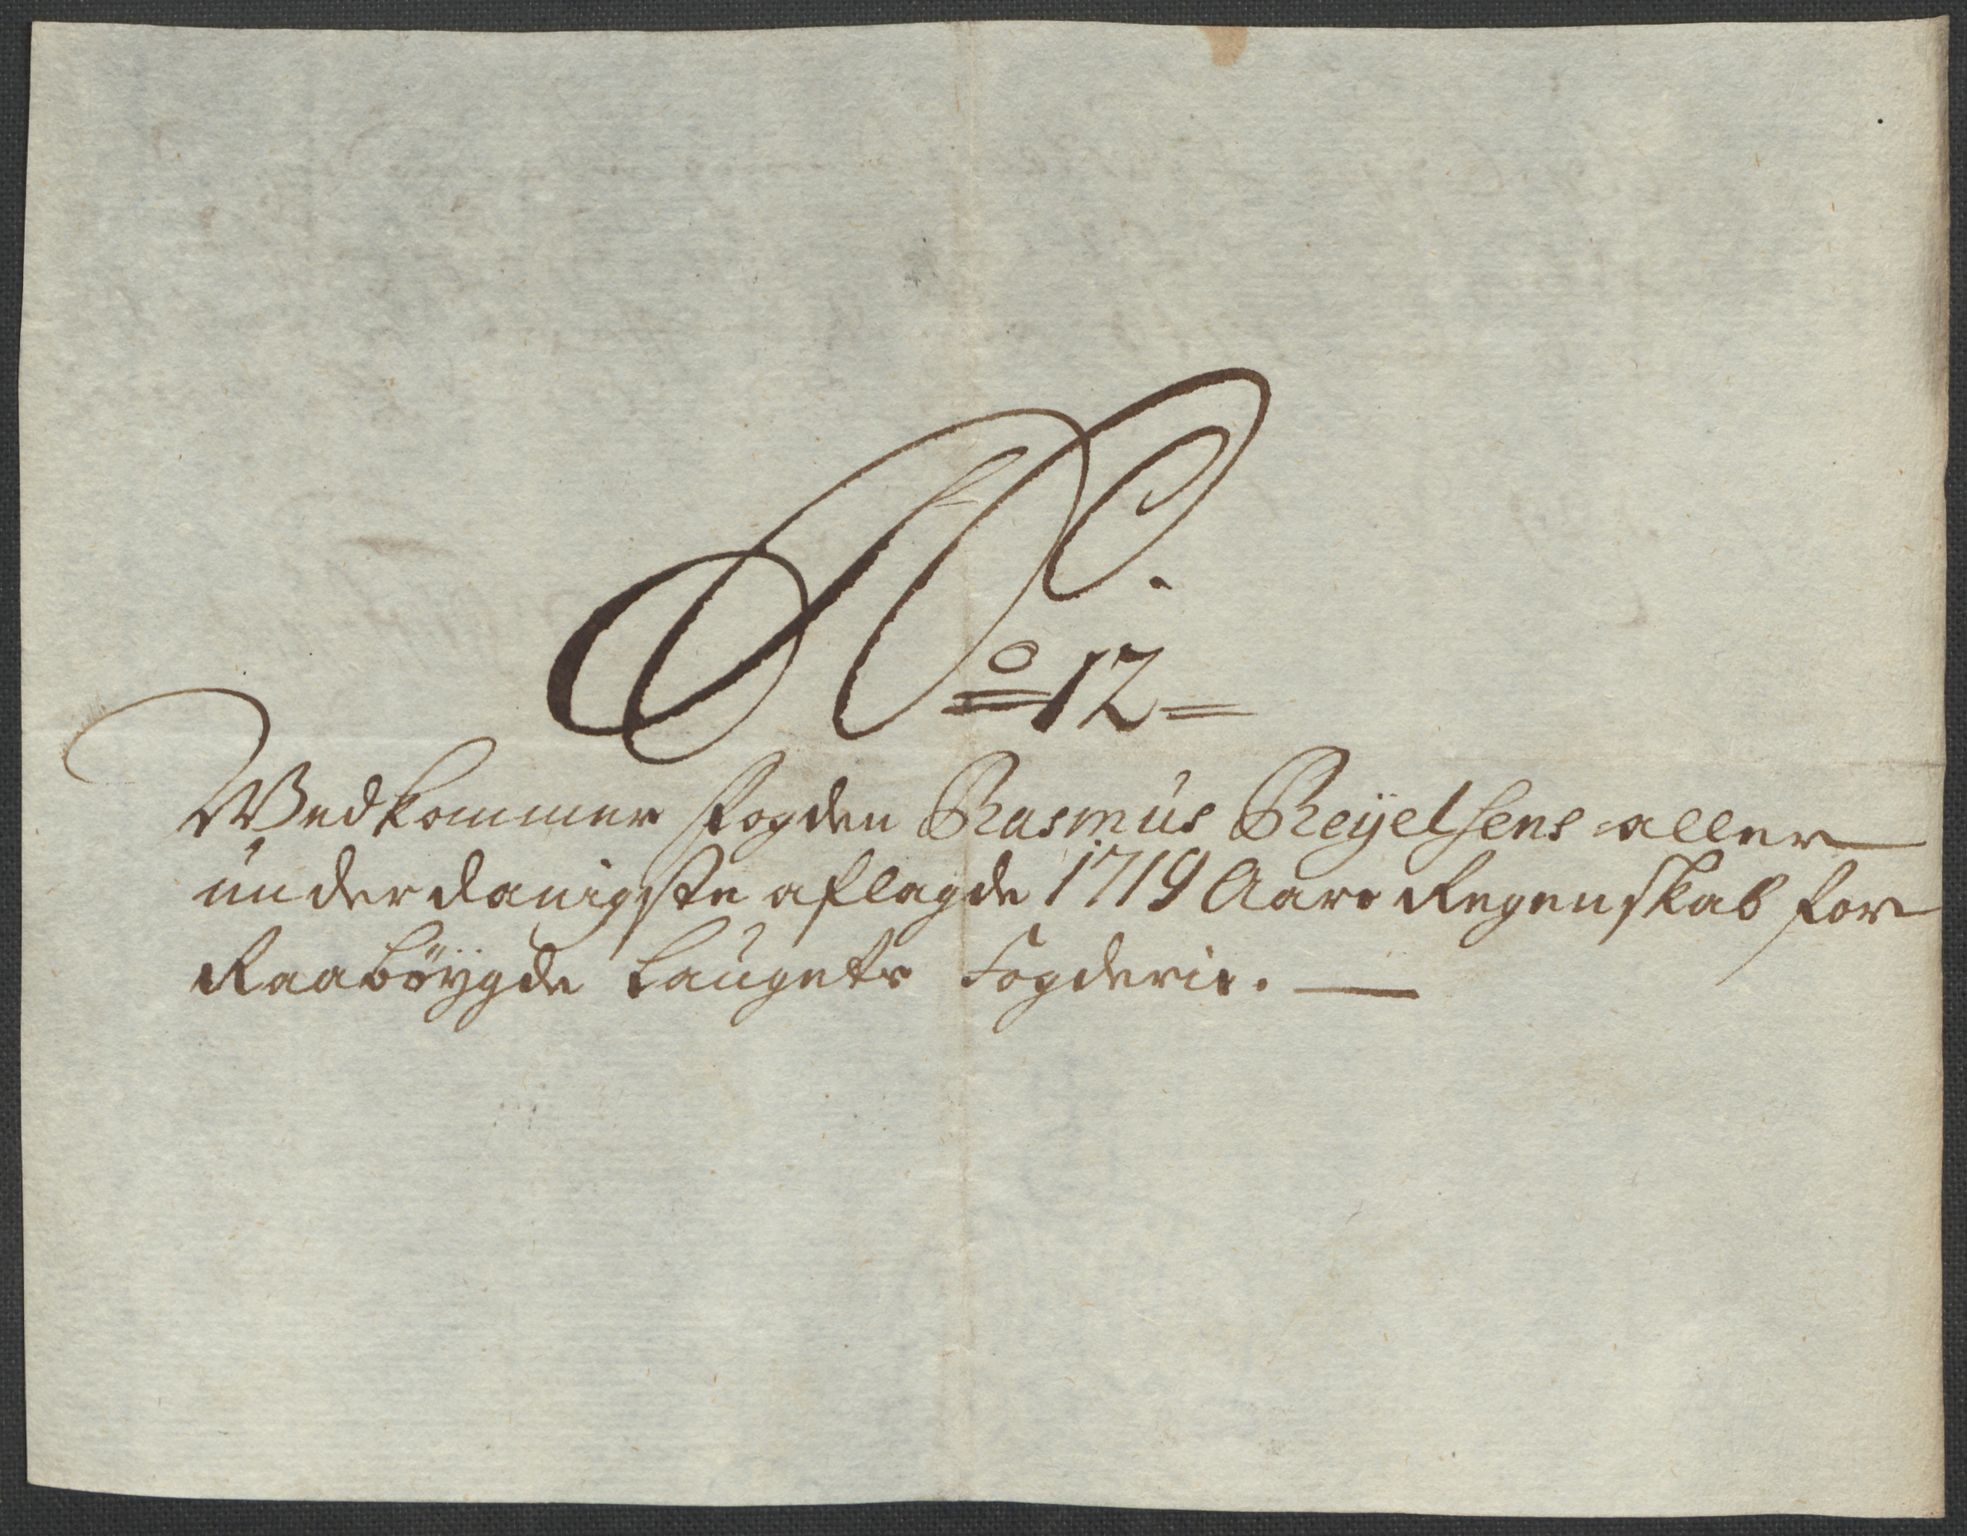 No 12
Wedkommer fogden Rasmus Reyelsens aller
underdanigste aflagde 1719 Aars Regenskab for
Raabøygde Laugets Fogderie.